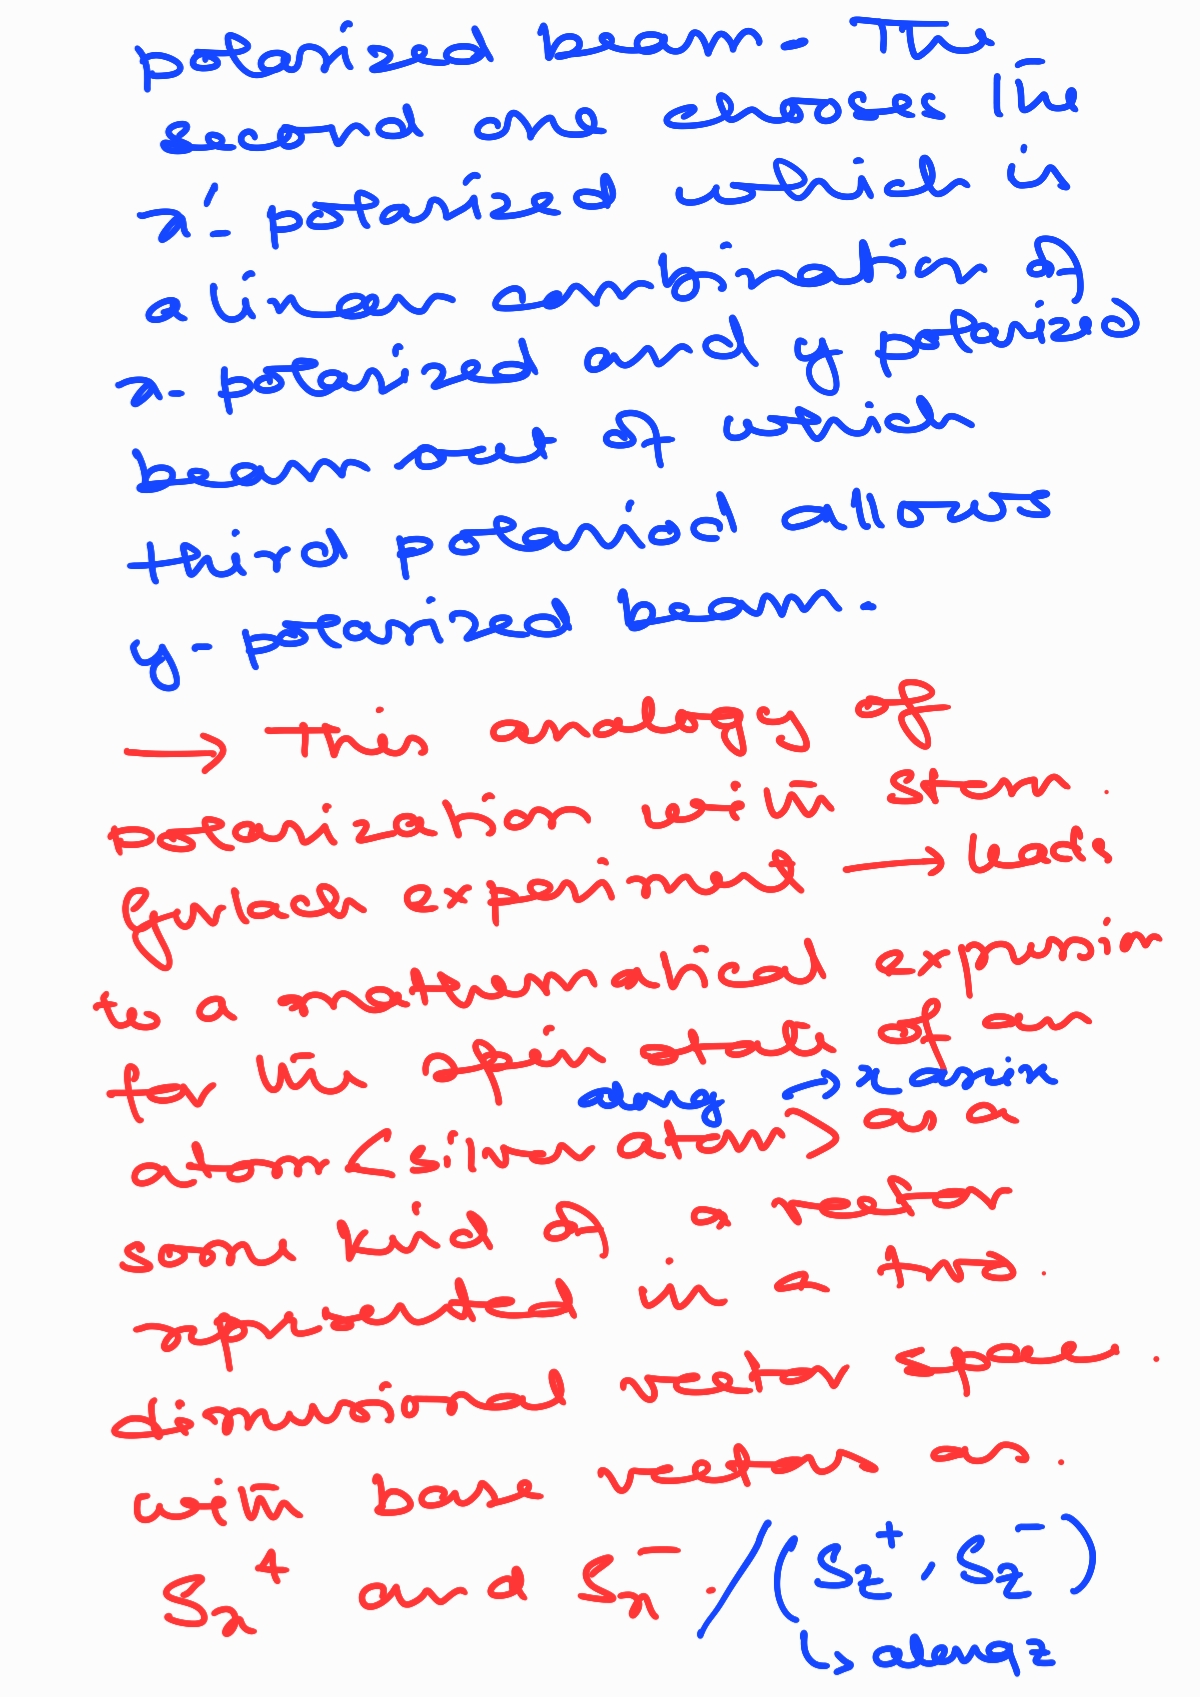 polarized beam. The
second one chooses the
x'- polarized which is
a linear combination of
x- polarized and y polarized
beam out of which
third polariod allows
y- polarized beam.
→ This analogy of
polarization with Stern
Gerlach experiment → leads
to a mathematical expression
for the spin state of an
along → x axis
atom <silver atom> as a
some kind of a vector
represented in a two
dimensional vector space
with base vectors as
Sx+ and Sx- . / (Sz+, Sz-)
↳ along z